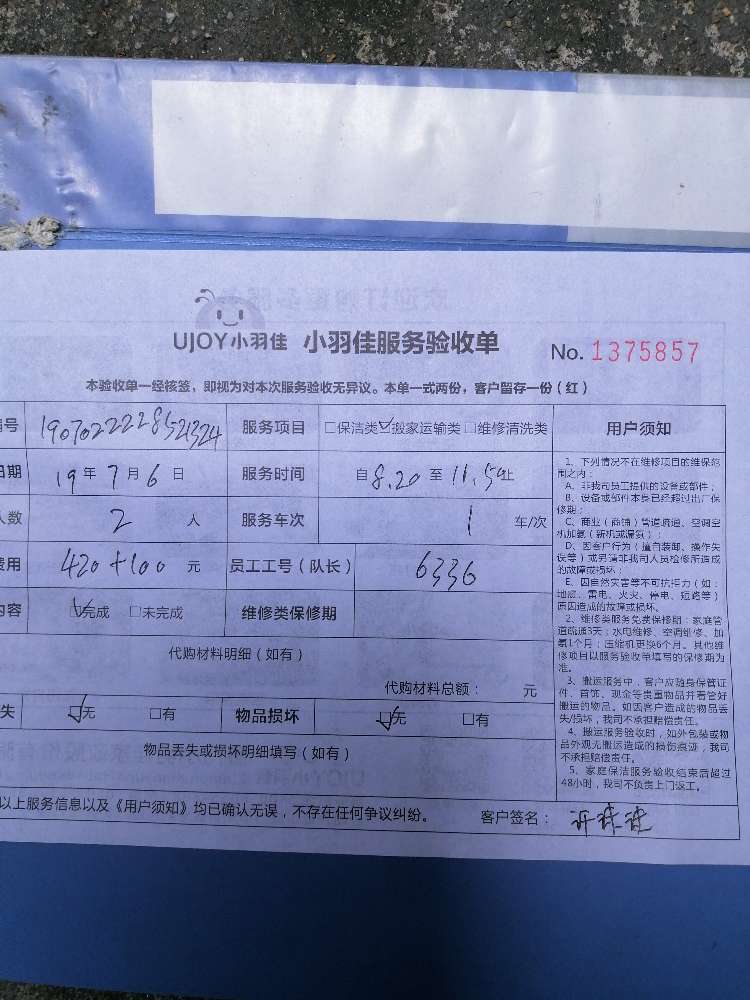 UJOY小羽佳 小羽佳服务验收单 No. 1375857
本验收单一经核签，即视为对本次服务验收无异议。本单一式两份，客户留存一份（红）
号 1907022228521324 服务项目 □保洁类 ☑搬家运输类 □维修清洗类 用户须知
日期 19 年 7 月 6 日 服务时间 自 8.20 至 11.50止
人数 2 人 服务车次 1 车/次
费用 420+100 元 员工工号（队长） 6336
内容 ☑完成 □未完成 维修类保修期
代购材料明细（如有）
代购材料总额： 元
失 ☑无 □有 物品损坏 ☑无 □有
物品丢失或损坏明细填写（如有）
以上服务信息以及《用户须知》均已确认无误，不存在任何争议纠纷。 客户签名：
1、下列情况不在维修项目的维保范
制之内：
A、非我司员工提供的设备或部件；
B、设备或部件本身已经超过出厂保
修期；
C、商业（商铺）管道疏通、空调空
机加氨（新机或漏氨）；
D、因客户行为（擅自装卸、操作失
误等）或另请非我司人员检修所造成
的故障或损坏；
E、因自然灾害等不可抗拒力（如：
地震、雷电、火灾、停电、短路等）
原因造成的故障或损坏。
2、维修类服务免费保修期：家庭管
道疏通3天；水电维修、空调维修、加
氨1个月；压缩机更换6个月。其他维
修项目以服务验收单填写的保修期为
准。
3、搬运服务中，客户应随身保管证
件、首饰、现金等贵重物品并看管好
搬运的物品。如因客户造成的物品丢
失/损坏，我司不承担赔偿责任。
4、搬运服务验收时，如外包装或物
品外观无搬运造成的损伤痕迹，我司
不承担赔偿责任。
5、家庭保洁服务验收结束后超过
48小时，我司不负责上门返工。